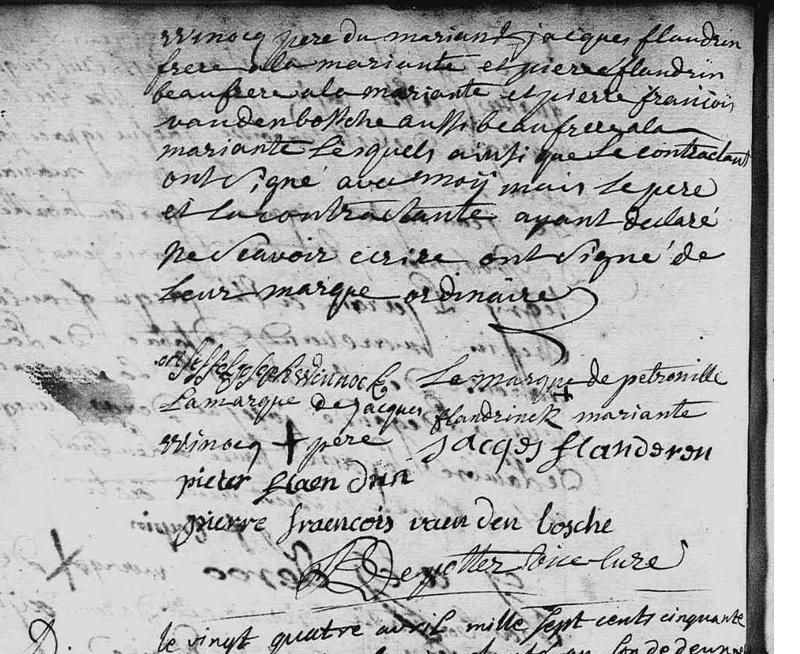 winocq pere du mariant, jacques flandrin
frere a la mariante et pierre flandrin
beaufrere a la mariante et pierre francois
vandenbossche aussi beaufrere a la
mariante lesquels ainsi que le contractant
ont signé avec moÿ mais le pere
et la contractante ayant declaré
ne scavoir ecrire ont signé de
leur marque ordinaire
joseph winnock le marque + de petronille
la marque de jacques flandrinck mariante
winocq + pere jacqes flanderen
pieter flaendrin
pierre fraencois vaen den bosche
Depotter vice-cure
le vingt quatre avril mille sept cents cinquante